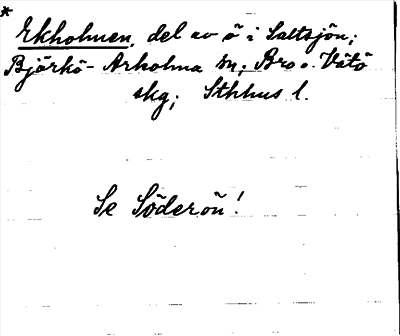 *
Ekholmen, del av ö i Saltsjön;
Björkö-Arholma sn; Bro o. Vätö
skg; Sthlms l.
Se Söderön!